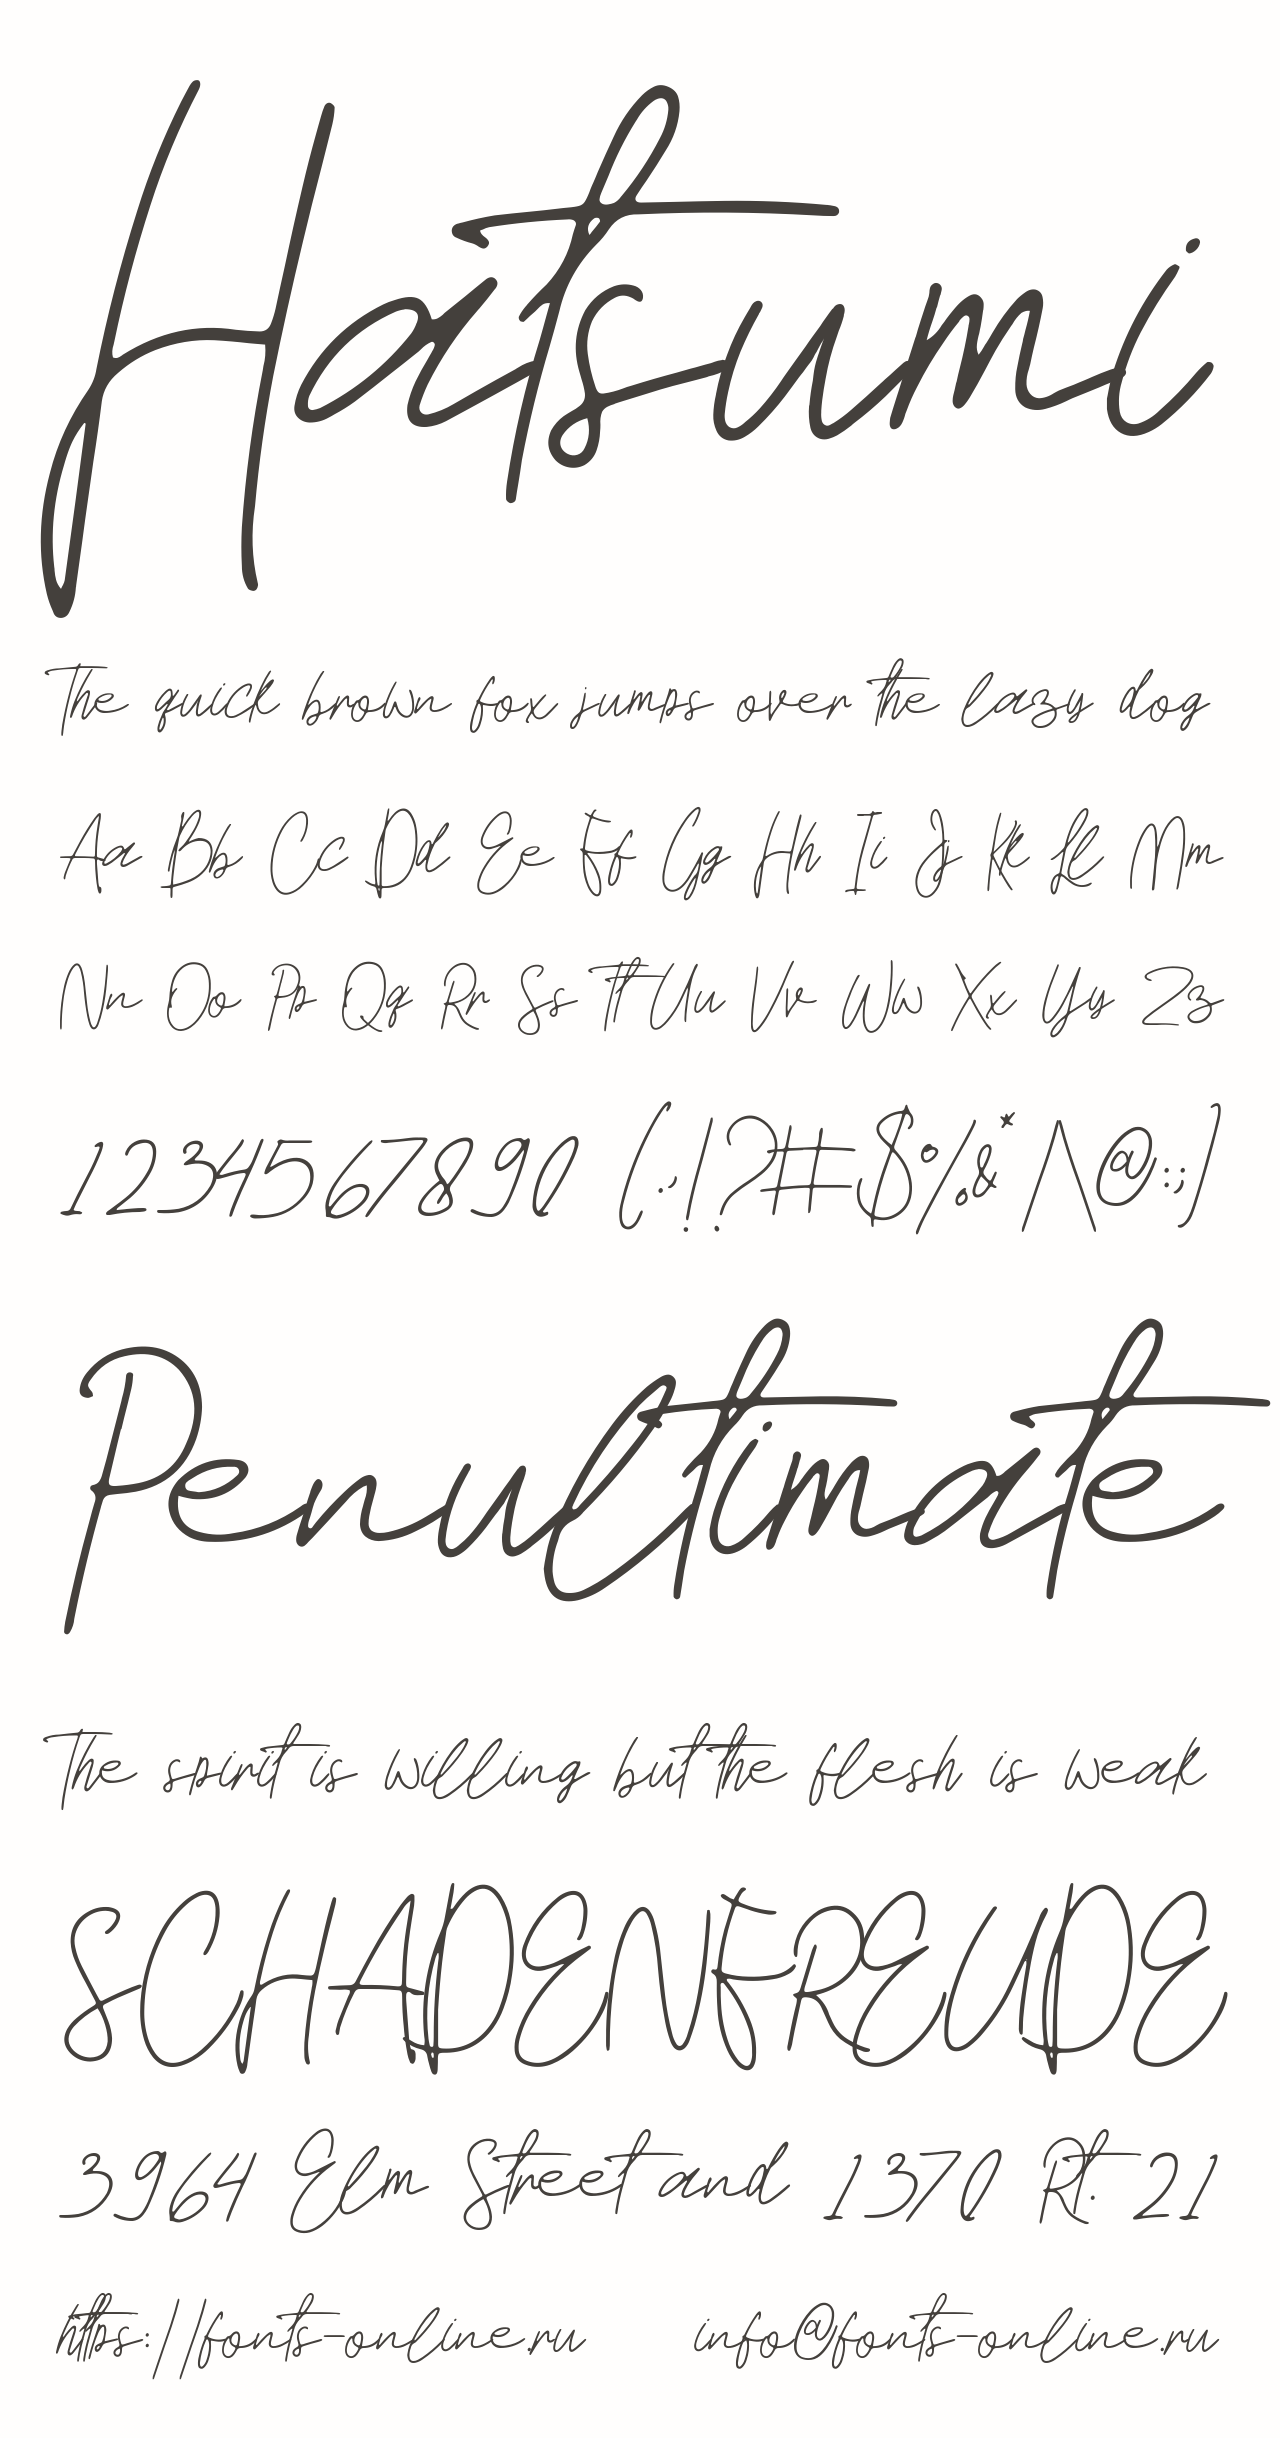 Hatsumi
The quick brown fox jumps over the lazy dog
Aa Bb Cc Dd Ee Ff Gg Hh Ii Jj Kk Ll Mm
Nn Oo Pp Qq Rr Ss Tt Uu Vv Ww Xx Yy Zz
1234567890 (.,!?#$%&* /\@:;)
Penultimate
The spirit is willing but the flesh is weak
SCHADENFREUDE
3964 Elm Street and 1370 Rt. 21
https://fonts-online.ru info@fonts-online.ru